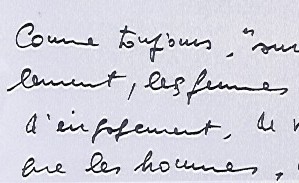 Comme toujours, "sur
lement, les femmes
d'engagement, de
que les hommes,